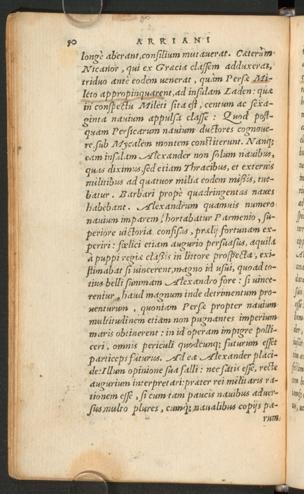 80 ARRIANI
longè aberant, consilium mutauerat. Cæterùm
Nicanor, qui ex Græcia classem adduxerat,
triduo antè eodem uenerat, quàm Persæ Mi-
leto appropinquarent, ad insulam Laden: quæ
in conspectu Mileti sita est, centum ac sexa-
ginta nauium appulsa classe: Quod post-
quam Persicarum nauium ductores cognoue-
re, sub Mycalen montem constiterunt. Nanque
eam insulam Alexander non solum nauibus,
quas diximus, sed etiam Thracibus, et externis
militibus ad quatuor milia eodem missis, tue-
batur. Barbari propè quadringentas naues
habebant. Alexandrum quamuis numero
nauium imparem, hortabatur Parmenio, su-
periore uictoria confisus, prælij fortunam ex-
periri: fœlici etiam augurio persuasus, aquila
à puppi regiæ classis in littore prospecta, exi-
stimabat si uincerent, magno id usui, quoad to-
tius belli summam Alexandro fore: si uince-
rentur, haud magnum inde detrimentum pro-
uenturum, quoniam Persæ propter nauium
multitudinem etiam non pugnantes imperium
maris obtinerent: in id operam impigrè polli-
ceri, omnis periculi quodcunque futurum esset
particeps futurus. Ad ea Alexander placi-
dè: Illum opinione sua falli: nec satis esse, rectè
augurium interpretari: præter rei militaris ra-
tionem esse, si cum tam paucis nauibus aduer-
sus multo plures, cumque naualibus copijs pa-
rum